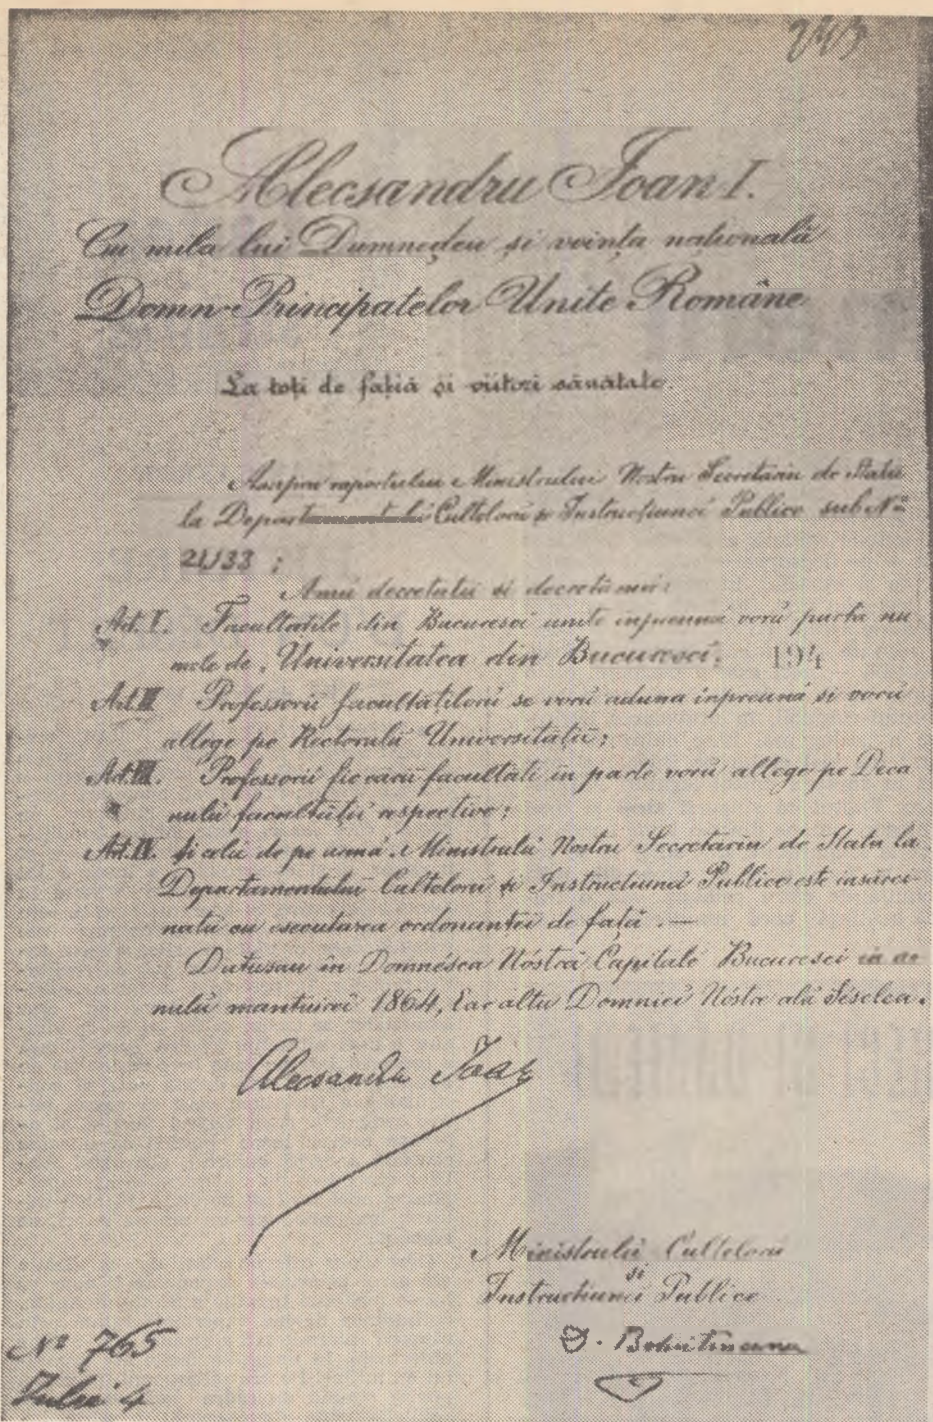 Alecsandru Ioan I.
Cu mila lui Dumneḑeu și voința naționalâ
Domn Principatelor Unite Române
La toți de façiă și viitori sănătate.
Asupra raportului Ministrului Nostru Secretariu de Statu
la Departamentului Cultelorŭ și Instrucțiuneĭ Publice sub No
21133 ;
Amŭ decretatŭ si decretămŭ:
Art. I. Facultatile din Bucuresci unite inpreună vorŭ purta nu
mele de, Universitatea din Bucuresci. 194
Art. II Professorii facultăților̆ŭ se vorŭ aduna inpreună si vorŭ
allege pe Rectorulŭ Universitatiĭ;
Art. III. Professorii fie căriĭ facultăti in parte vorŭ allege pe Deca
nulŭ facultății respective;
Art. IV. Și celu de pe urmă. Ministrulŭ Nostru Secretariu de Statu la
Departamentulŭ Cultelorŭ și Instructiuneĭ Publice este insărci
natu cu esecutarea ordonanteĭ de fată. —
Datusau in Domnésca Nóstră Capitale Bucuresci in a
nulŭ mantuireĭ 1864, Ear altu Domnieĭ Nóstre alŭ Séselea.
Alecsandru Ioan
Ministrulŭ Cultelorŭ
si
Instructiuneĭ Publice
D. Bolintineanu
No 765
Iulie 4